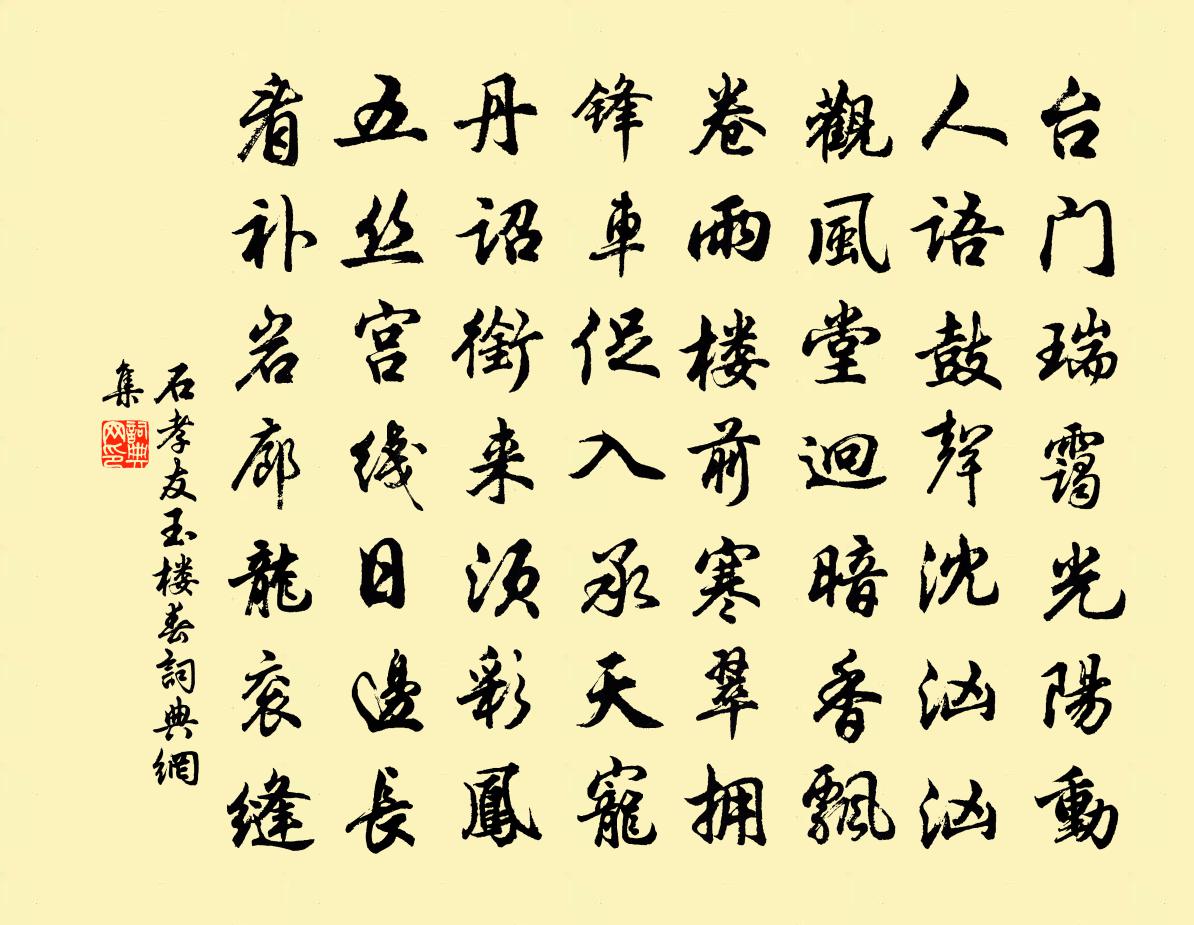 台门瑞霭光陽動
人语鼓聲沈汹汹
觀風堂迥暗香飄
卷雨楼前寒翠拥
锋車促入承天寵
丹诏銜来须彩鳳
五丝宫线日邊長
看补岩廊龍衮缝
石孝友玉楼春詞典網
集
詞典网印